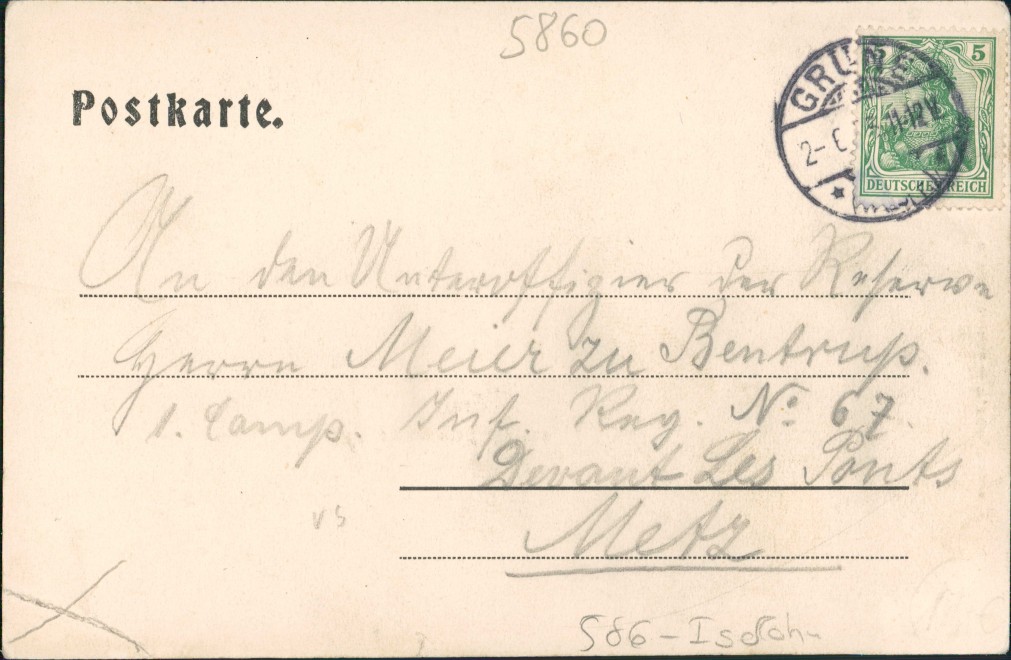 5860
Postkarte.
GRÜNE
2- 11-12V.
5
DEUTSCHES REICH
An den Unteroffizier der Reserve
Herrn Meier zu Bentrup.
1. Comp. Inf. Reg. No. 67.
Devant Les Ponts
Metz
586-